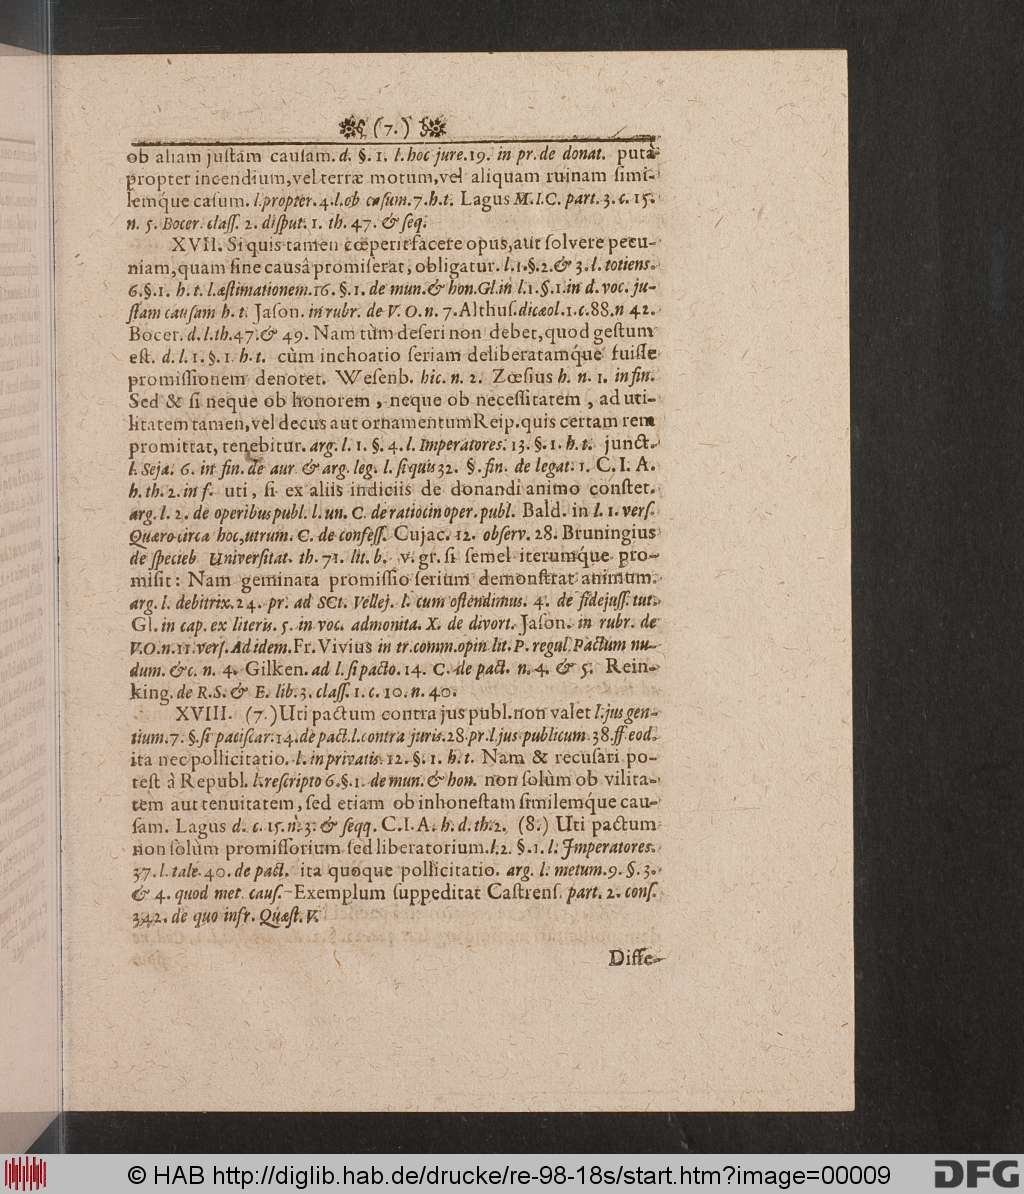 (7.)
ob aliam justam causam. d. §. 1. l. hoc jure. 19. in pr. de donat. puta
propter incendium, vel terræ motum, vel aliquam ruinam simi-
lemq́ue casum. l. propter. 4. l. ob casum. 7. h. t. Lagus M. I. C. part. 3. c. 15.
n. 5. Bocer. class. 2. disput. 1. th. 47. & seq.
XVII. Si quis tamen cœperit facere opus, aut solvere pecu-
niam, quam sine causâ promiserat, obligatur. l. 1. §. 2. & 3. l. totiens.
6. §. 1. h. t. l. æstimationem. 16. §. 1. de mun. & hon. Gl. in l. 1. §. 1. in d. voc. ju-
stam causam h. t. Jason. in rubr. de V. O. n. 7. Althus. dicæol. 1. c. 88. n 42.
Bocer. d. l. th. 47. & 49. Nam tùm deseri non debet, quod gestum
est. d. l. 1. §. 1. h. t. cùm inchoatio seriam deliberatamq́ue fuisse
promissionem denotet. Wesenb. hic. n. 2. Zœsius h. n. 1. in fin.
Sed & si neque ob honorem, neque ob necessitatem, ad uti-
litatem tamen, vel decus aut ornamentum Reip. quis certam rem
promittat, tenebitur. arg. l. 1. §. 4. l. Imperatores. 13. §. 1. h. t. junct.
l. Seja. 6. in fin. de aur & arg. leg. l. si quis 32. §. fin. de legat. 1. C. I. A.
h. th. 2. in f. uti, si ex aliis indiciis de donandi animo constet.
arg. l. 2. de operibus publ. l. un. C. de ratiocin oper. publ. Bald. in l. 1. vers.
Quæro circa hoc, utrum. C. de confess. Cujac. 12. observ. 28. Bruningius
de specieb Universitat. th. 71. lit. b. v. gr. si semel iterumq́ue pro-
misit: Nam geminata promissio serium demonstrat animum.
arg. l. debitrix. 24. pr. ad SCt. Vellej. l. cum ostendimus. 4. de fidejuss. tut.
Gl. in cap. ex literis. 5. in voc. admonita. X. de divort. Jason. in rubr. de
V. O. n. 11. vers. Ad idem. Fr. Vivius in tr. comm. opin lit. P. regul Pactum nu-
dum. &c. n. 4. Gilken. ad l. si pacto. 14. C. de pact. n. 4. & 5. Rein-
king. de R. S. & E. lib. 3. class. 1. c. 10. n. 40.
XVIII. (7.) Uti pactum contra jus publ. non valet l. jus gen-
tium. 7. §. si paciscar. 14. de pact. l. contra juris. 28. pr. l. jus publicum. 38. ff eod.
ita nec pollicitatio. l. in privatis. 12. §. 1. h. t. Nam & recusari po-
test â Republ. l. rescripto 6. §. 1. de mun. & hon. non solùm ob vilita-
tem aut tenuitatem, sed etiam ob inhonestam similemq́ue cau-
sam. Lagus d. c. 15. n. 3. & seqq. C. I. A. h. d. th. 2. (8.) Uti pactum
non solùm promissorium sed liberatorium. l. 2. §. 1. l. Imperatores.
37. l. tale. 40. de pact. ita quoque pollicitatio. arg. l. metum. 9. §. 3.
& 4. quod met caus. Exemplum suppeditat Castrens. part. 2. cons.
342. de quo infr. Quæst. V.
Diffe-
© HAB http://diglib.hab.de/drucke/re-98-18s/start.htm?image=00009
DFG